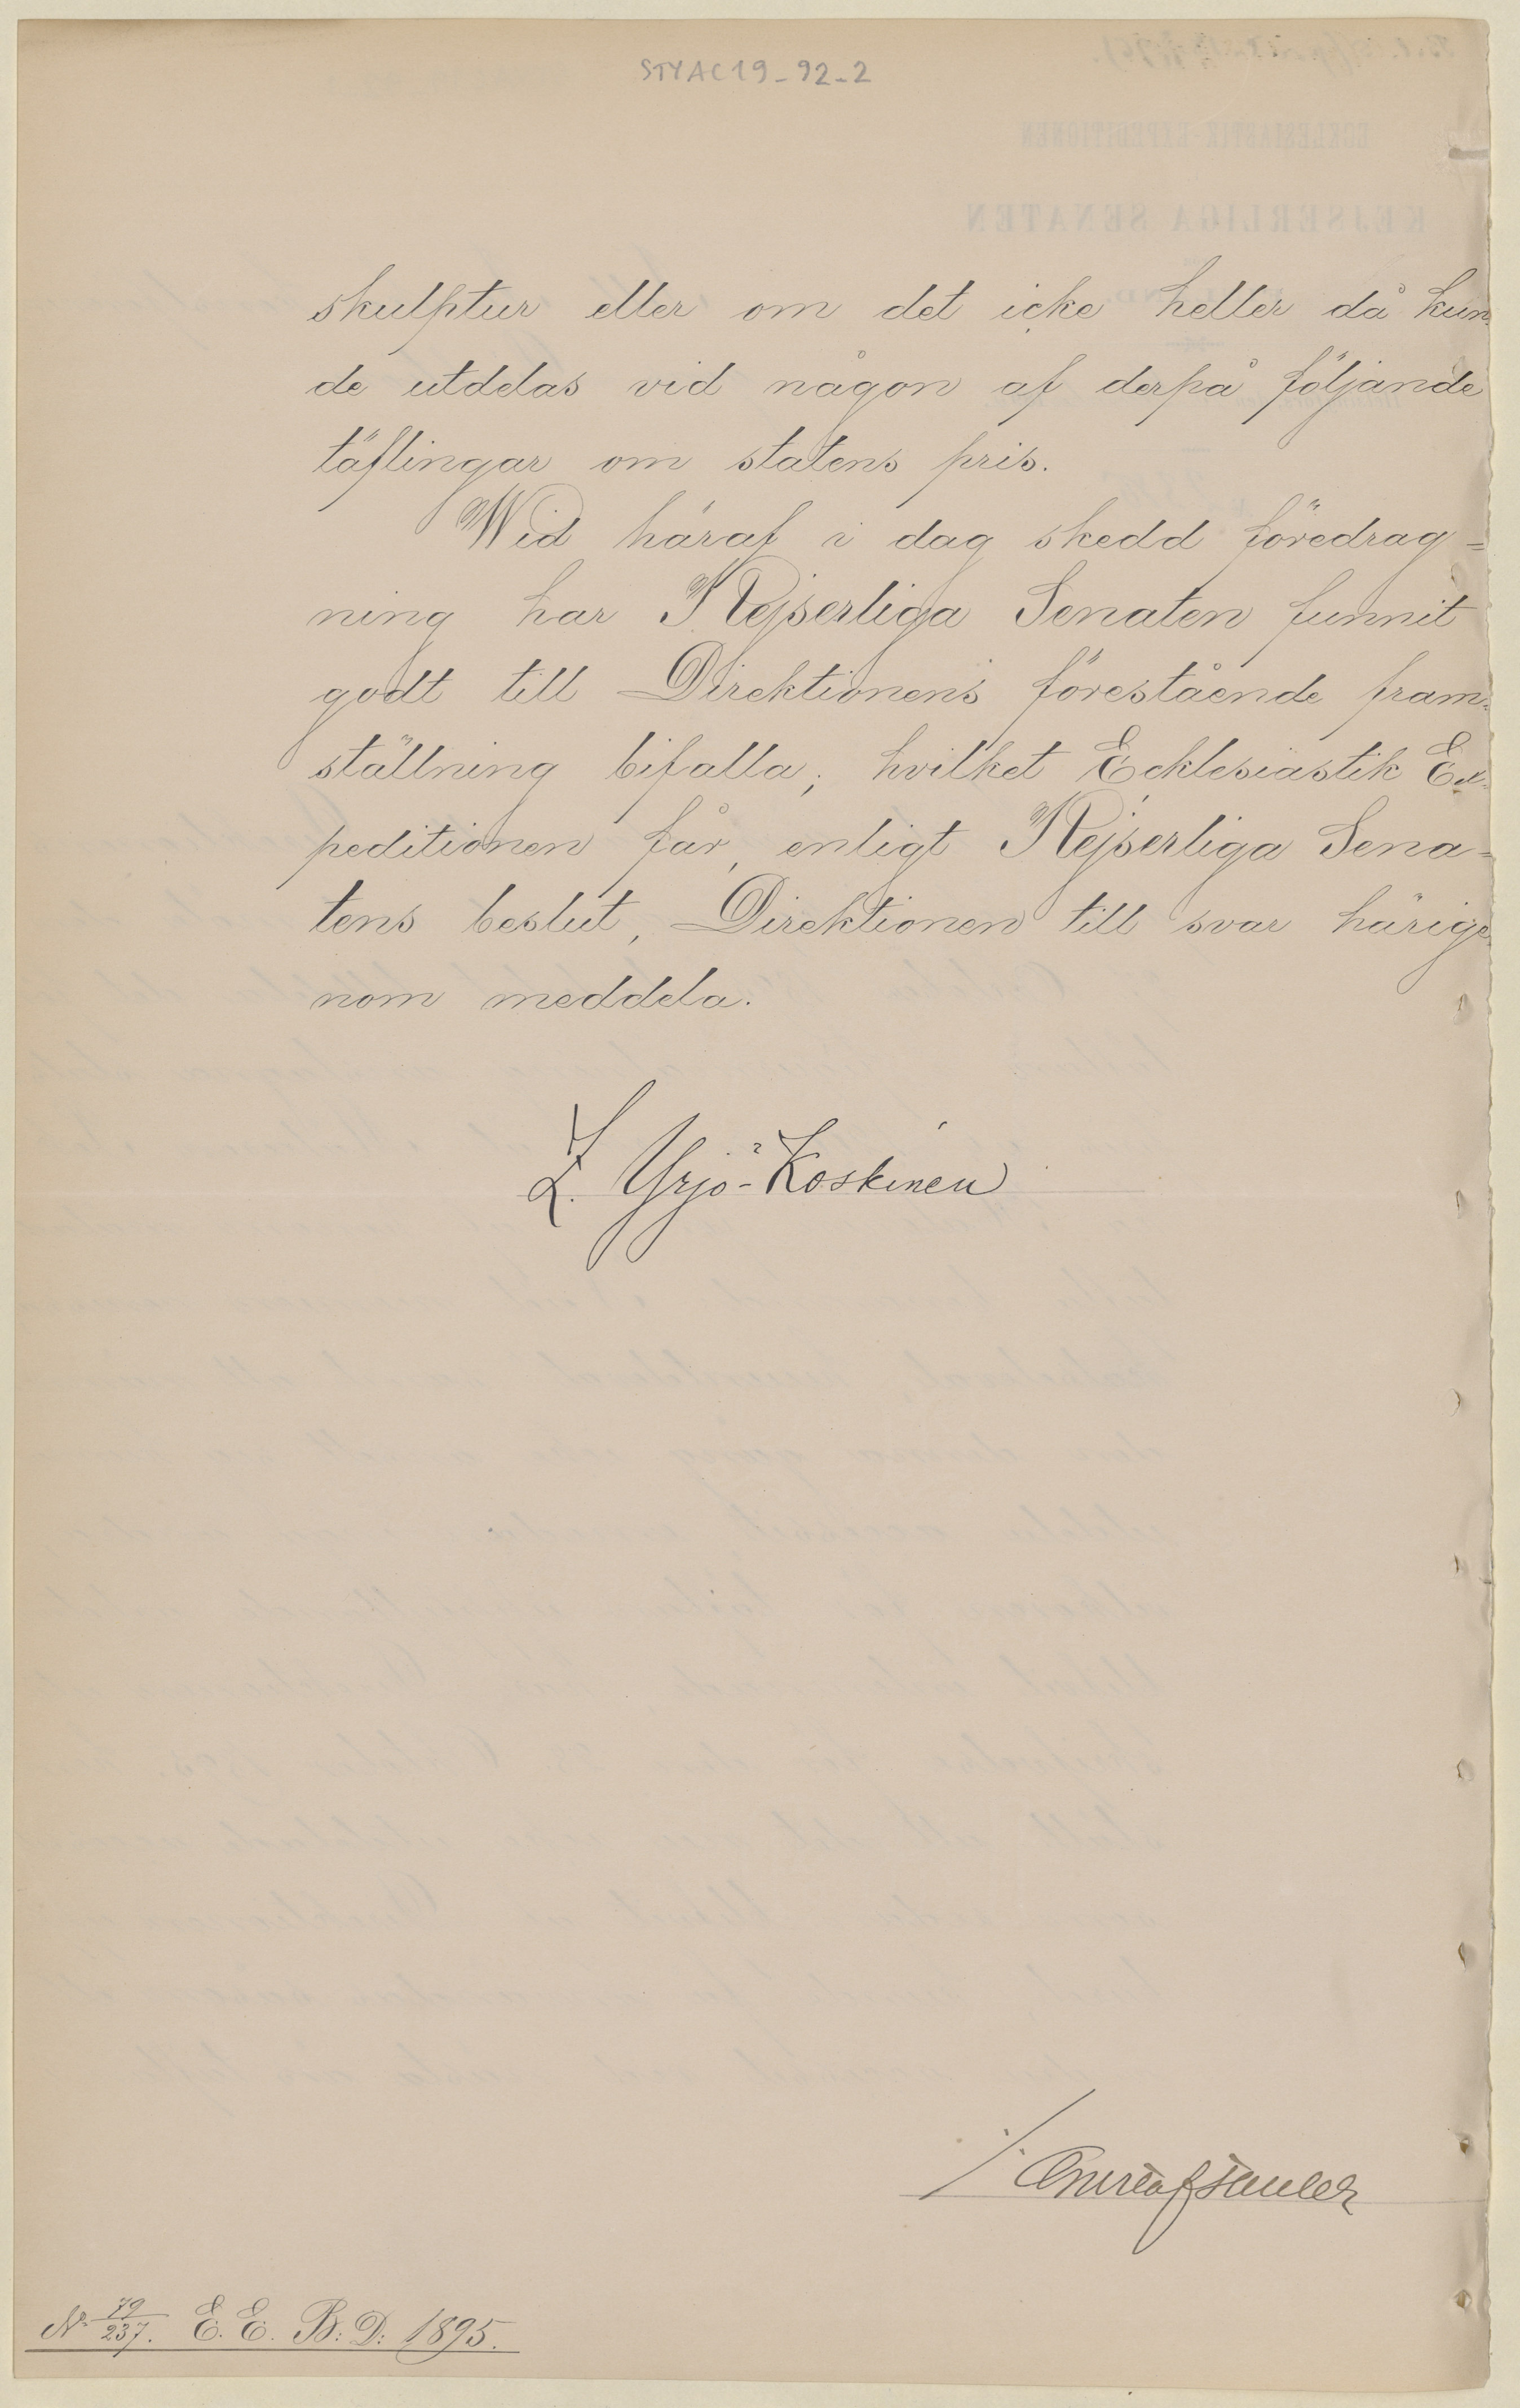 STYAC19-92-2
skulptur eller om det icke heller då kun-
de utdelas vid någon af derpå följande
täflingar om statens pris.
Wid häraf i dag skedd föredrag=
ning har Kejserliga Senaten funnit
godt till Direktionens förestående fram-
ställning bifalla; hvilket Ecklesiastik Ex-
peditionen får, enligt Kejserliga Sena=
tens beslut, Direktionen till svar härige-
nom meddela.
Z. Yrjö-Koskinen
N:o 79/237. E. E. B: D: 1895.